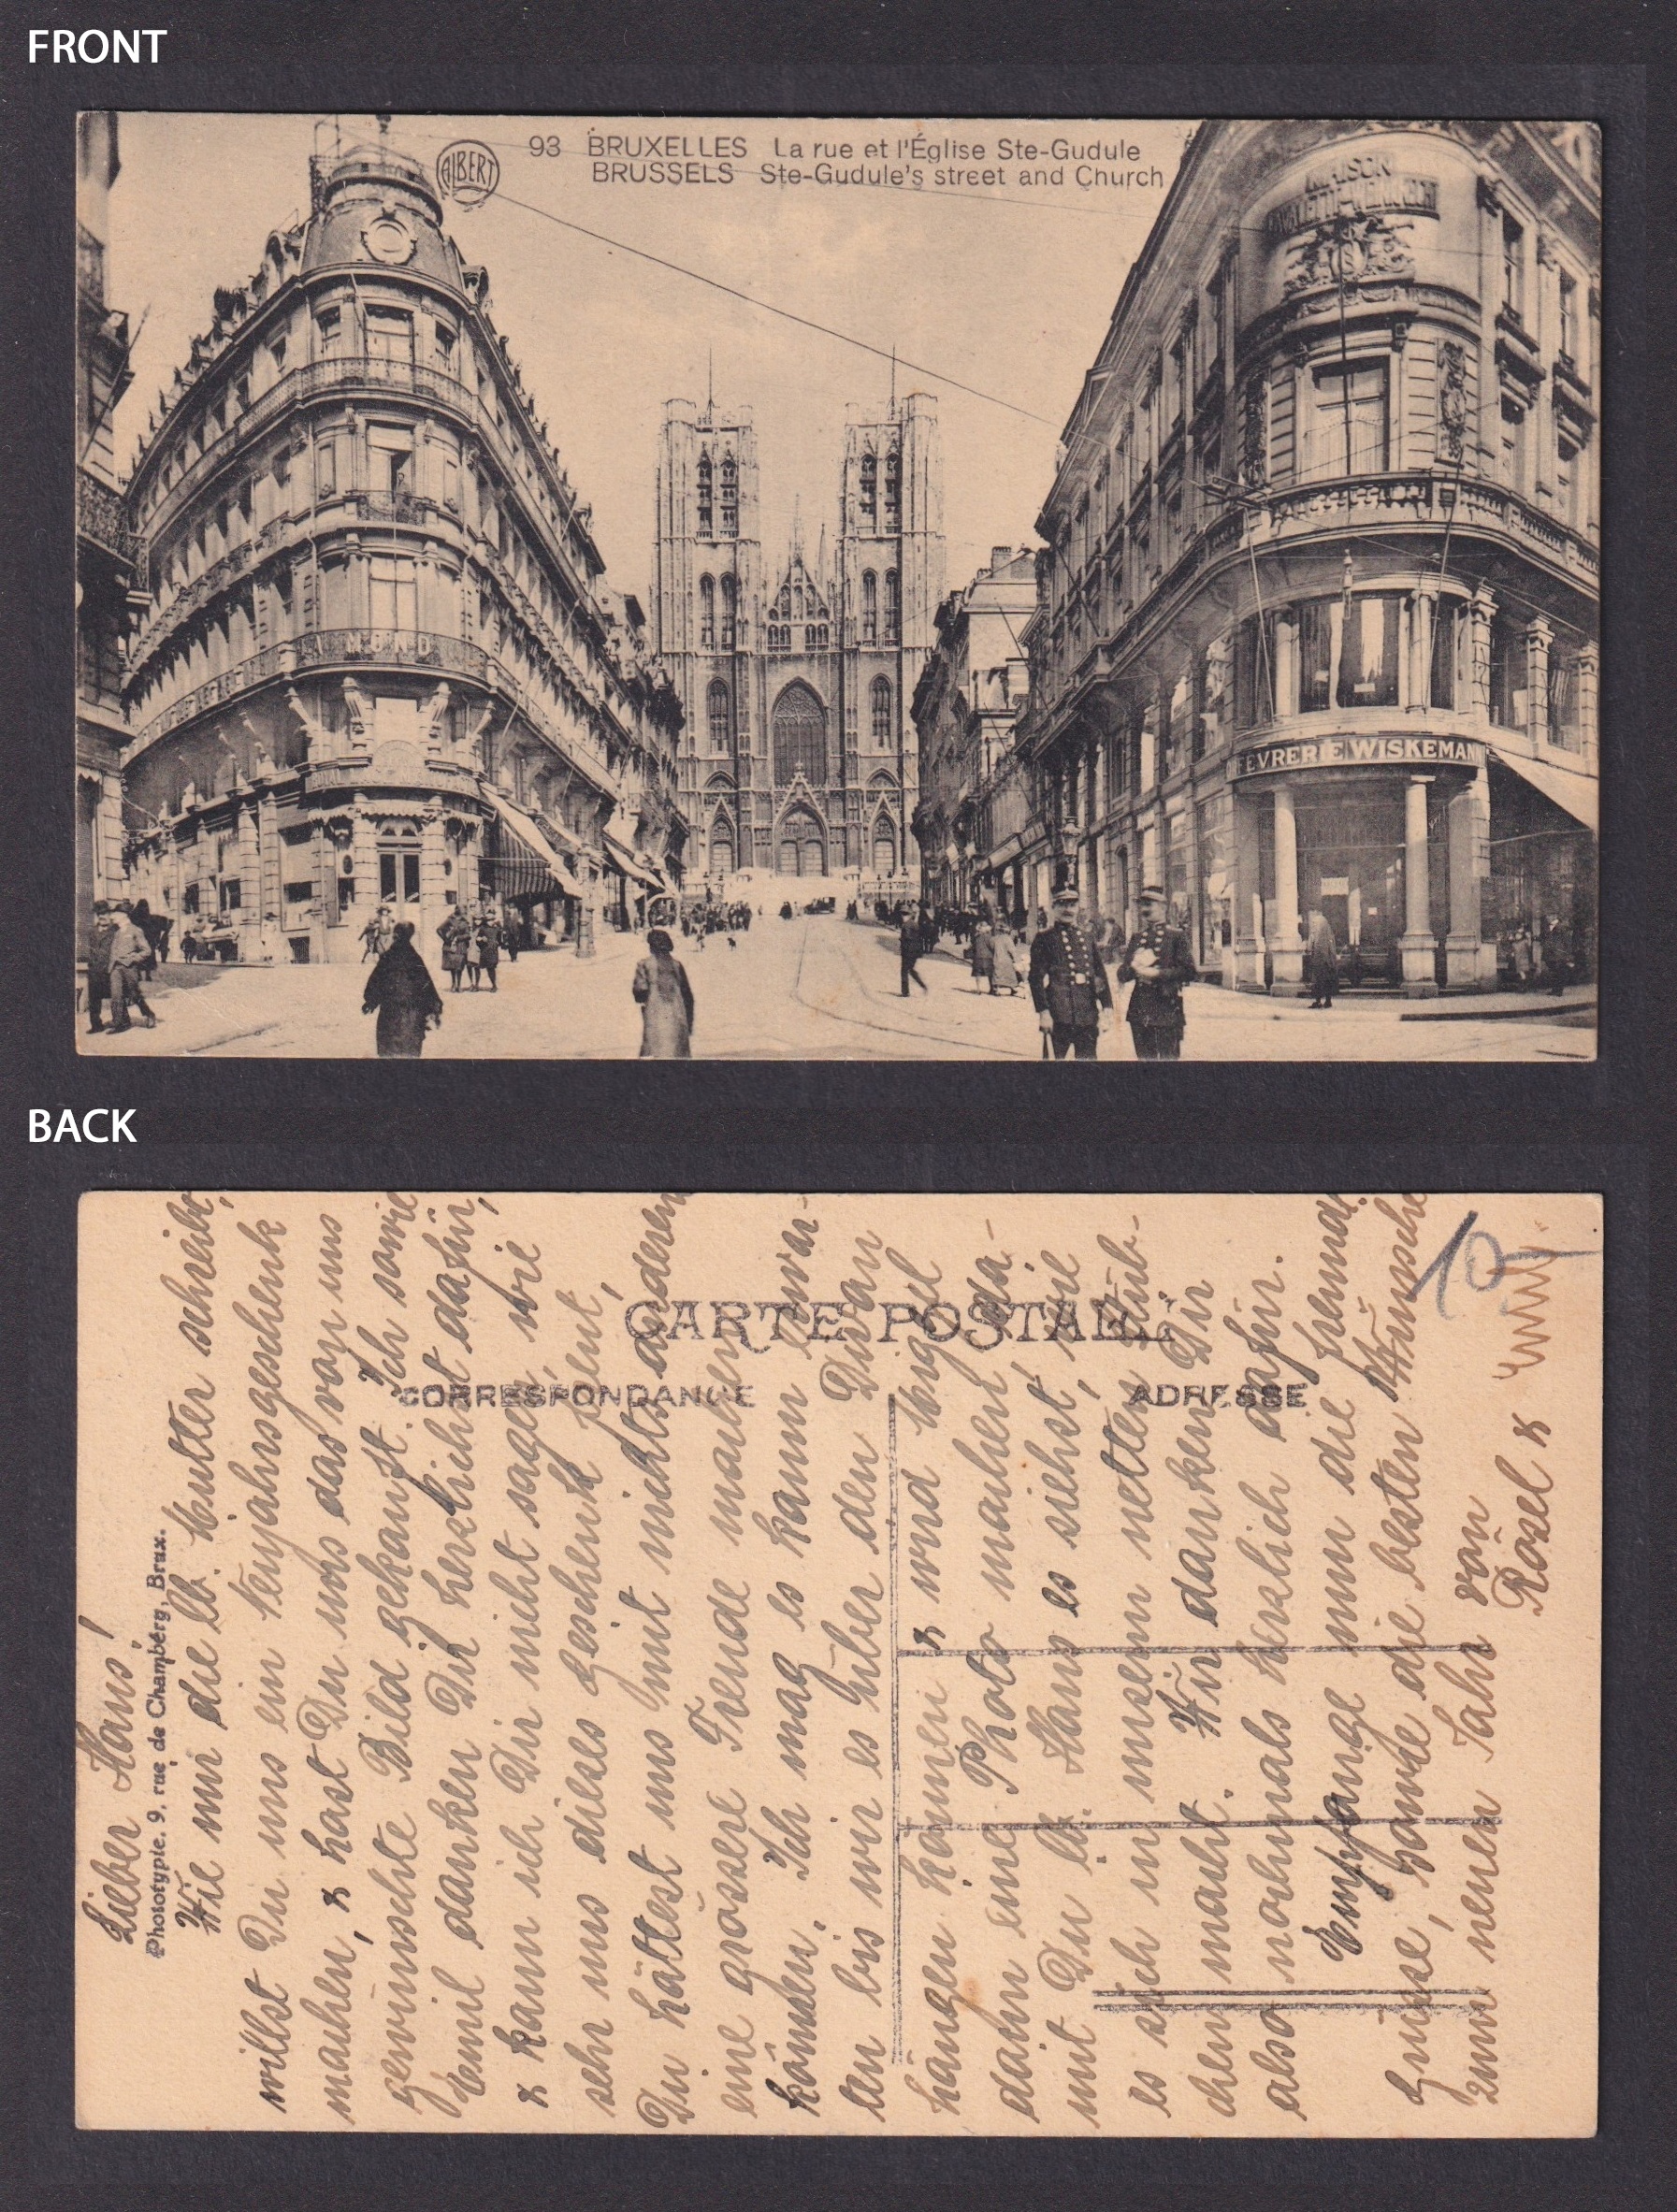 FRONT
ALBERT
93 BRUXELLES La rue et l'Église Ste-Gudule
BRUSSELS Ste-Gudule's street and Church
MAISON
MOND
FÈVRERIE WISKEMAN
BACK
CARTE POSTALE
CORRESPONDANCE
ADRESSE
Phototypie. 9, rue de Chambéry, Brux.
10
Lieber Hans!
Wie mir die lb. Mutter schreibt,
willst Du uns ein Neujahrsgeschenk
machen, & hast Du uns das von uns
gewünschte Bild gekauft. Ich sowie
Emil danken Dir herzlichst dafür,
& kann ich Dir nicht sagen, wie
sehr uns dieses Geschenk freut,
Du hättest uns mit nichts anderem
eine grössere Freude machen
können. Ich mag es kaum erwar-
ten bis wir es über den Divan
hängen können & wird Migel
dann eine Photo machen da-
mit Du lb. Hans es siehst, wie
es sich in unserm netten Stüb-
chen macht. Wir danken Dir
also nochmals herzlich dafür.
Empfange nun die freundl.
Grüsse, sowie die besten Wünsche
zum neuen Jahr von
Rösel &